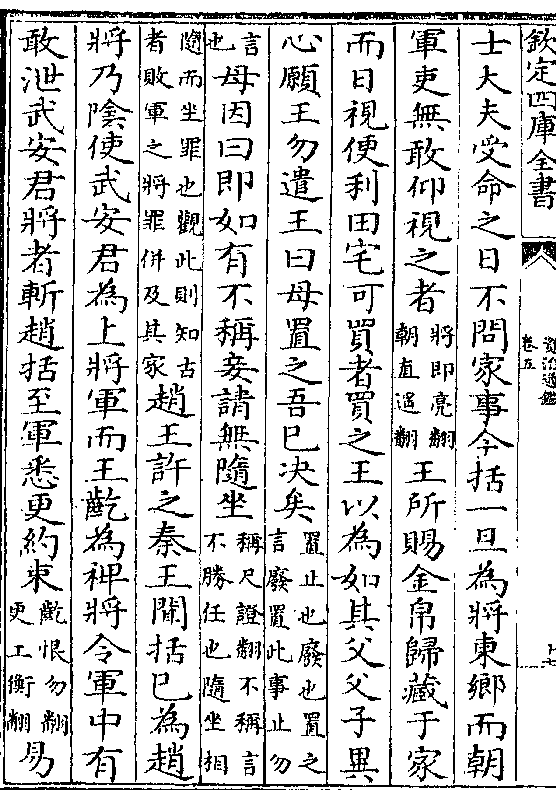 欽定四庫全書
資治通鑑
卷五
士大夫受命之日不問家事今括一旦為將東鄉而朝
軍吏無敢仰視之者將即亮翻朝直遥翻王所賜金帛歸藏于家
而日視便利田宅可買者買之王以為如其父父子異
心願王勿遣王曰母置之吾已决矣置止也廢也置之言廢置此事止勿
言也母因曰即如有不稱妾請無隨坐稱尺證翻不稱言不勝任也隨坐相
隨而坐罪也觀此則知古者敗軍之將罪併及其家趙王許之秦王聞括已為趙
將乃陰使武安君為上將軍而王齕為禆將令軍中有
敢泄武安君將者斬趙括至軍悉更約束齕恨勿翻更工衡翻易